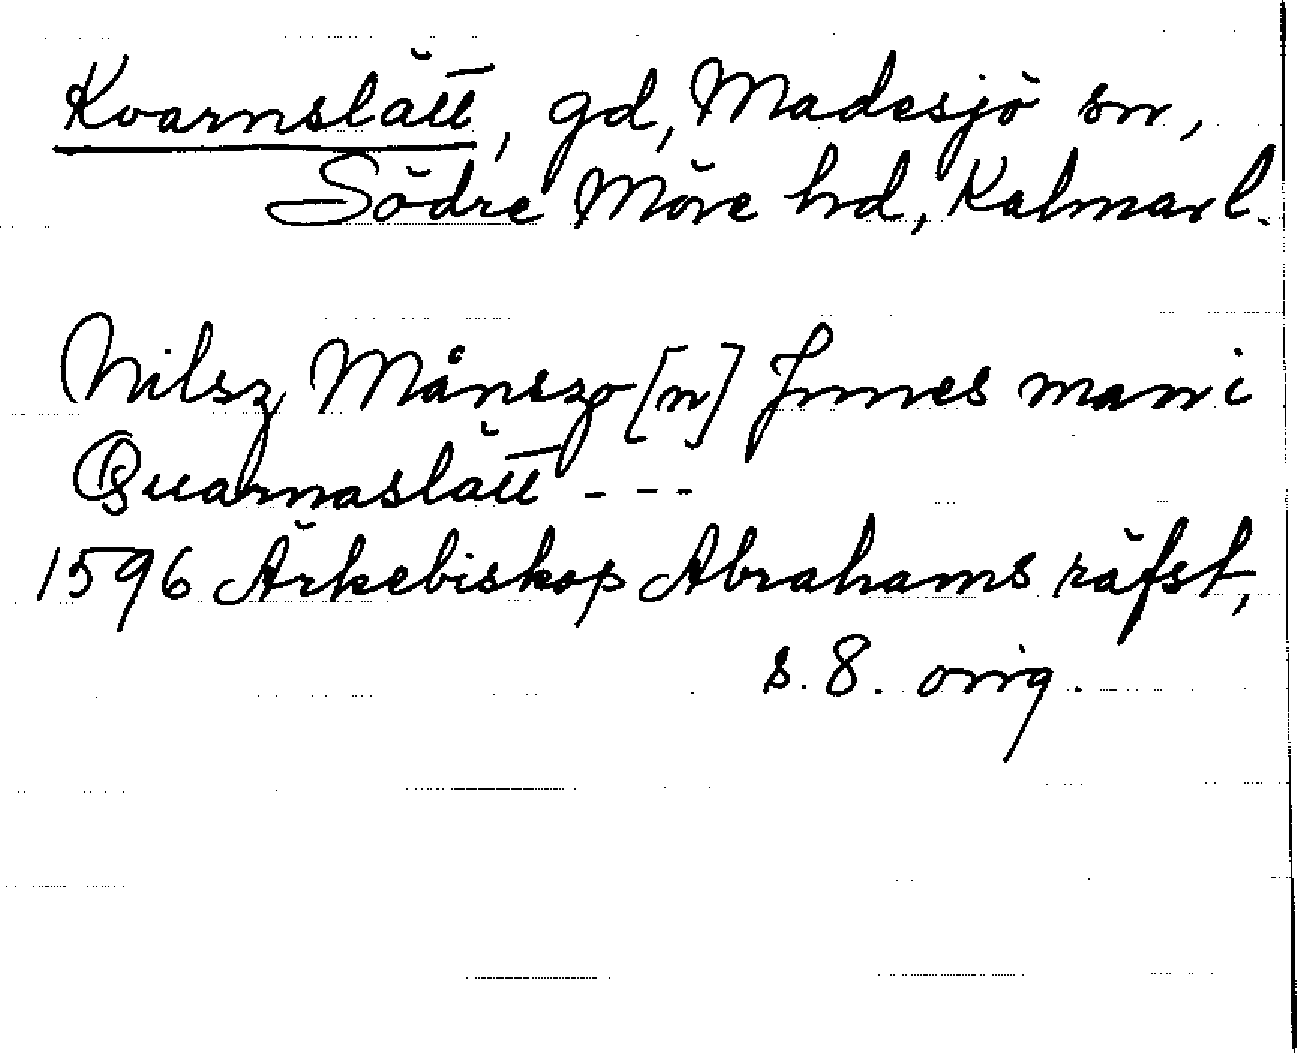 Kvarnslätt, gd, Madesjö sn,
Södre Möre hd, Kalmar l.
Nilsz Månszo[n] Jnnes man i
Quarnaslätt ---
1596 Ärkebiskop Abrahams räfst,
s. 8. orig.